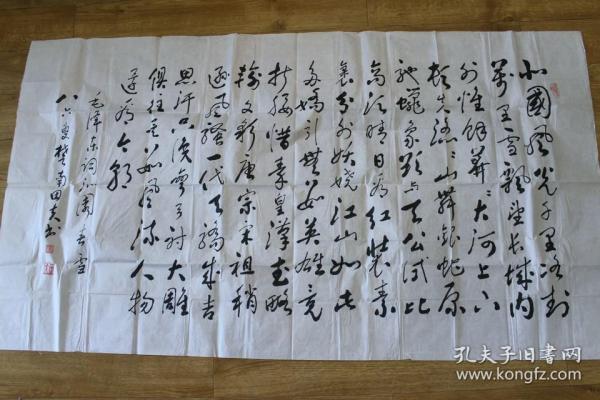 北國風光千里冰封
萬里雪飄望长城内
外惟餘莽々大河上下
頓失滔々山舞銀蛇原
馳蠟象欲与天公試比
高须晴日看红裝素
裹分外妖娆江山如此
多嬌引無數英雄竞
折腰惜秦皇漢武略
输文彩唐宗宋祖稍
逊风騷一代天骄成吉
思汗只识弯弓射大雕
俱往矣数风流人物
還看今朝
毛泽东词沁园春雪
八六叟 南田 书
孔夫子旧书网
www.kongfz.com